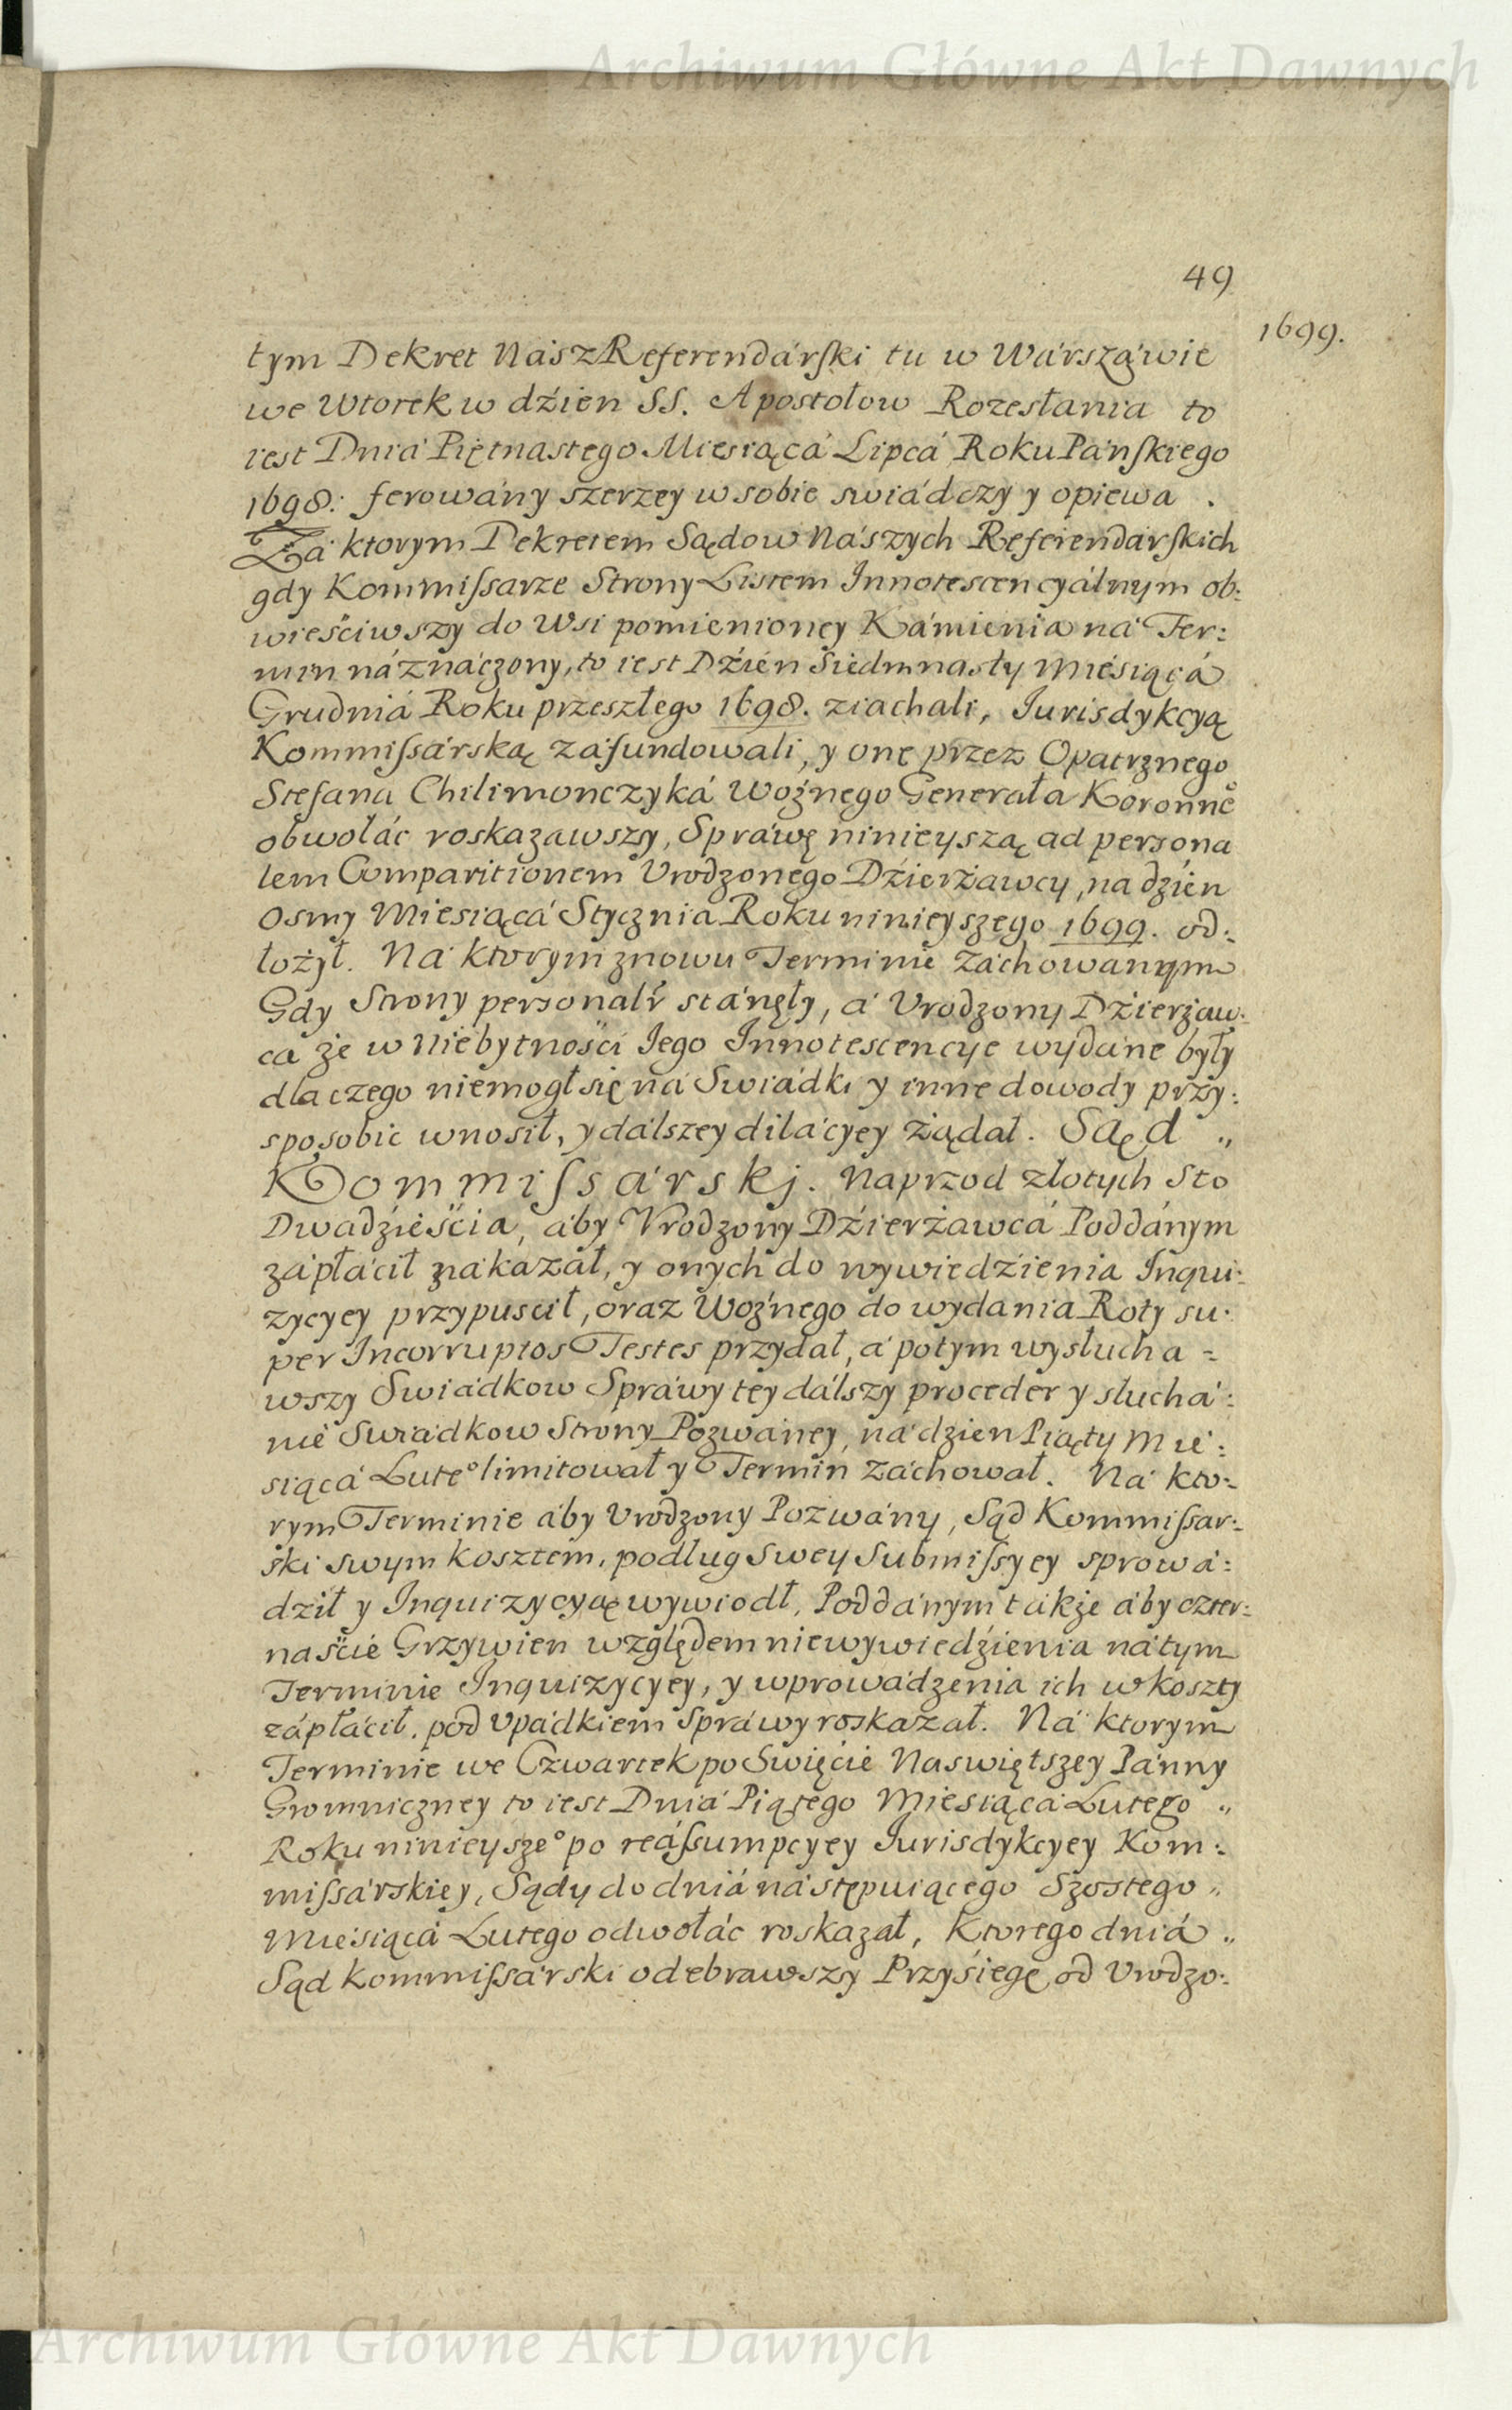 Archiwum Główne Akt Dawnych
49
1699.
tym Dekret Nász Referendárſki tu w Wárszáwie
we Wtorek w dźien SS. Apostołow Rozesłania to
iest Dniá Piętnastego Miesiącá Lipcá Roku Páńſkiego
1698: ferowány szerzey w sobie swiádczy y opiewa .
Zá ktorym Dekretem Sądow Nászych Referendárſkich
gdy Kommiſsarze Strony Listem Innotescencyálnym ob:
wieściwszy do Wsi pomienioney Kámienia ná Ter:
min náznáczony, to iest Dźień Siedmnasty Miesiącá
Grudniá Roku przeszłego 1698. ziachali, Iurisdykcyą
Kommiſsárską záfundowali, y one przez Opatrznego
Stefana Chilimonczyká Woźnego Generała Koronne͏̊
obwołáć roskazawszy, Spráwę ninieyszą ad persona
lem Comparitionem Vrodzonego Dźierżawcy, na dzień
osmy Miesiącá Stycznia Roku ninieyszego 1699. od:
łożył. Ná ktorym znowu Terminie záchowanym
Gdy Strony personalr̃ stánęły, á Vrodzony Dźierżaw:
cá że w Niebytności Iego Innotescencye wydáne były
dla czego niemogł się ná Swiádki y inne dowody przy:
sposobic wnosił, y dálszey dilácyey żądał. Sąd „
Kommiſsárskj. Naprzod złotych Sto
Dwadźieścia, áby Vrodzony Dźierżawcá Poddánym
zápłácił nakazał, y onych do wywiedźienia Inqui:
zycyey przypuscił, oraz Woźnego do wydania Roty su:
per Incorruptos Testes przydał, á potym wysłucha =
wszy Swiádkow Spráwy tey dálszy proceder y słuchá:
nie Swiádkow Strony Pozwáney, ná dzien Piąty Mie:
siącá Lute͏̊ limitował y Termin záchował. Ná kto:
rym Terminie áby Vrodzony Pozwány, Sąd Kommiſsar:
ski swym kosztem, podług Swey Submiſsyey sprowá:
dźił y Inquizycyą wywiodł, Poddánym tákże áby czter:
naście Grzywien względem niewywiedźienia ná tym
Terminie Inquizycyey, y wprowádzenia ich w koszty
zápłácił. pod Vpádkiem Spráwy roskazał. Ná ktorym
Terminie we Czwartek po Swięcie Naswiętszey Pánny
Gromniczney to iest Dniá Piątego Miesiącá Lutego „
Roku ninieysze͏̊ po reáſsumpcyey Iurisdykcyey Kom:
miſsárskiey, Sądy do dniá nástępuiącego Szostego „
Miesiącá Lutego odwołác roskazał, Ktorego dniá „
Sąd Kommiſsárski odebrawszy Przyśięgę od Vrodzo:
Archiwum Główne Akt Dawnych